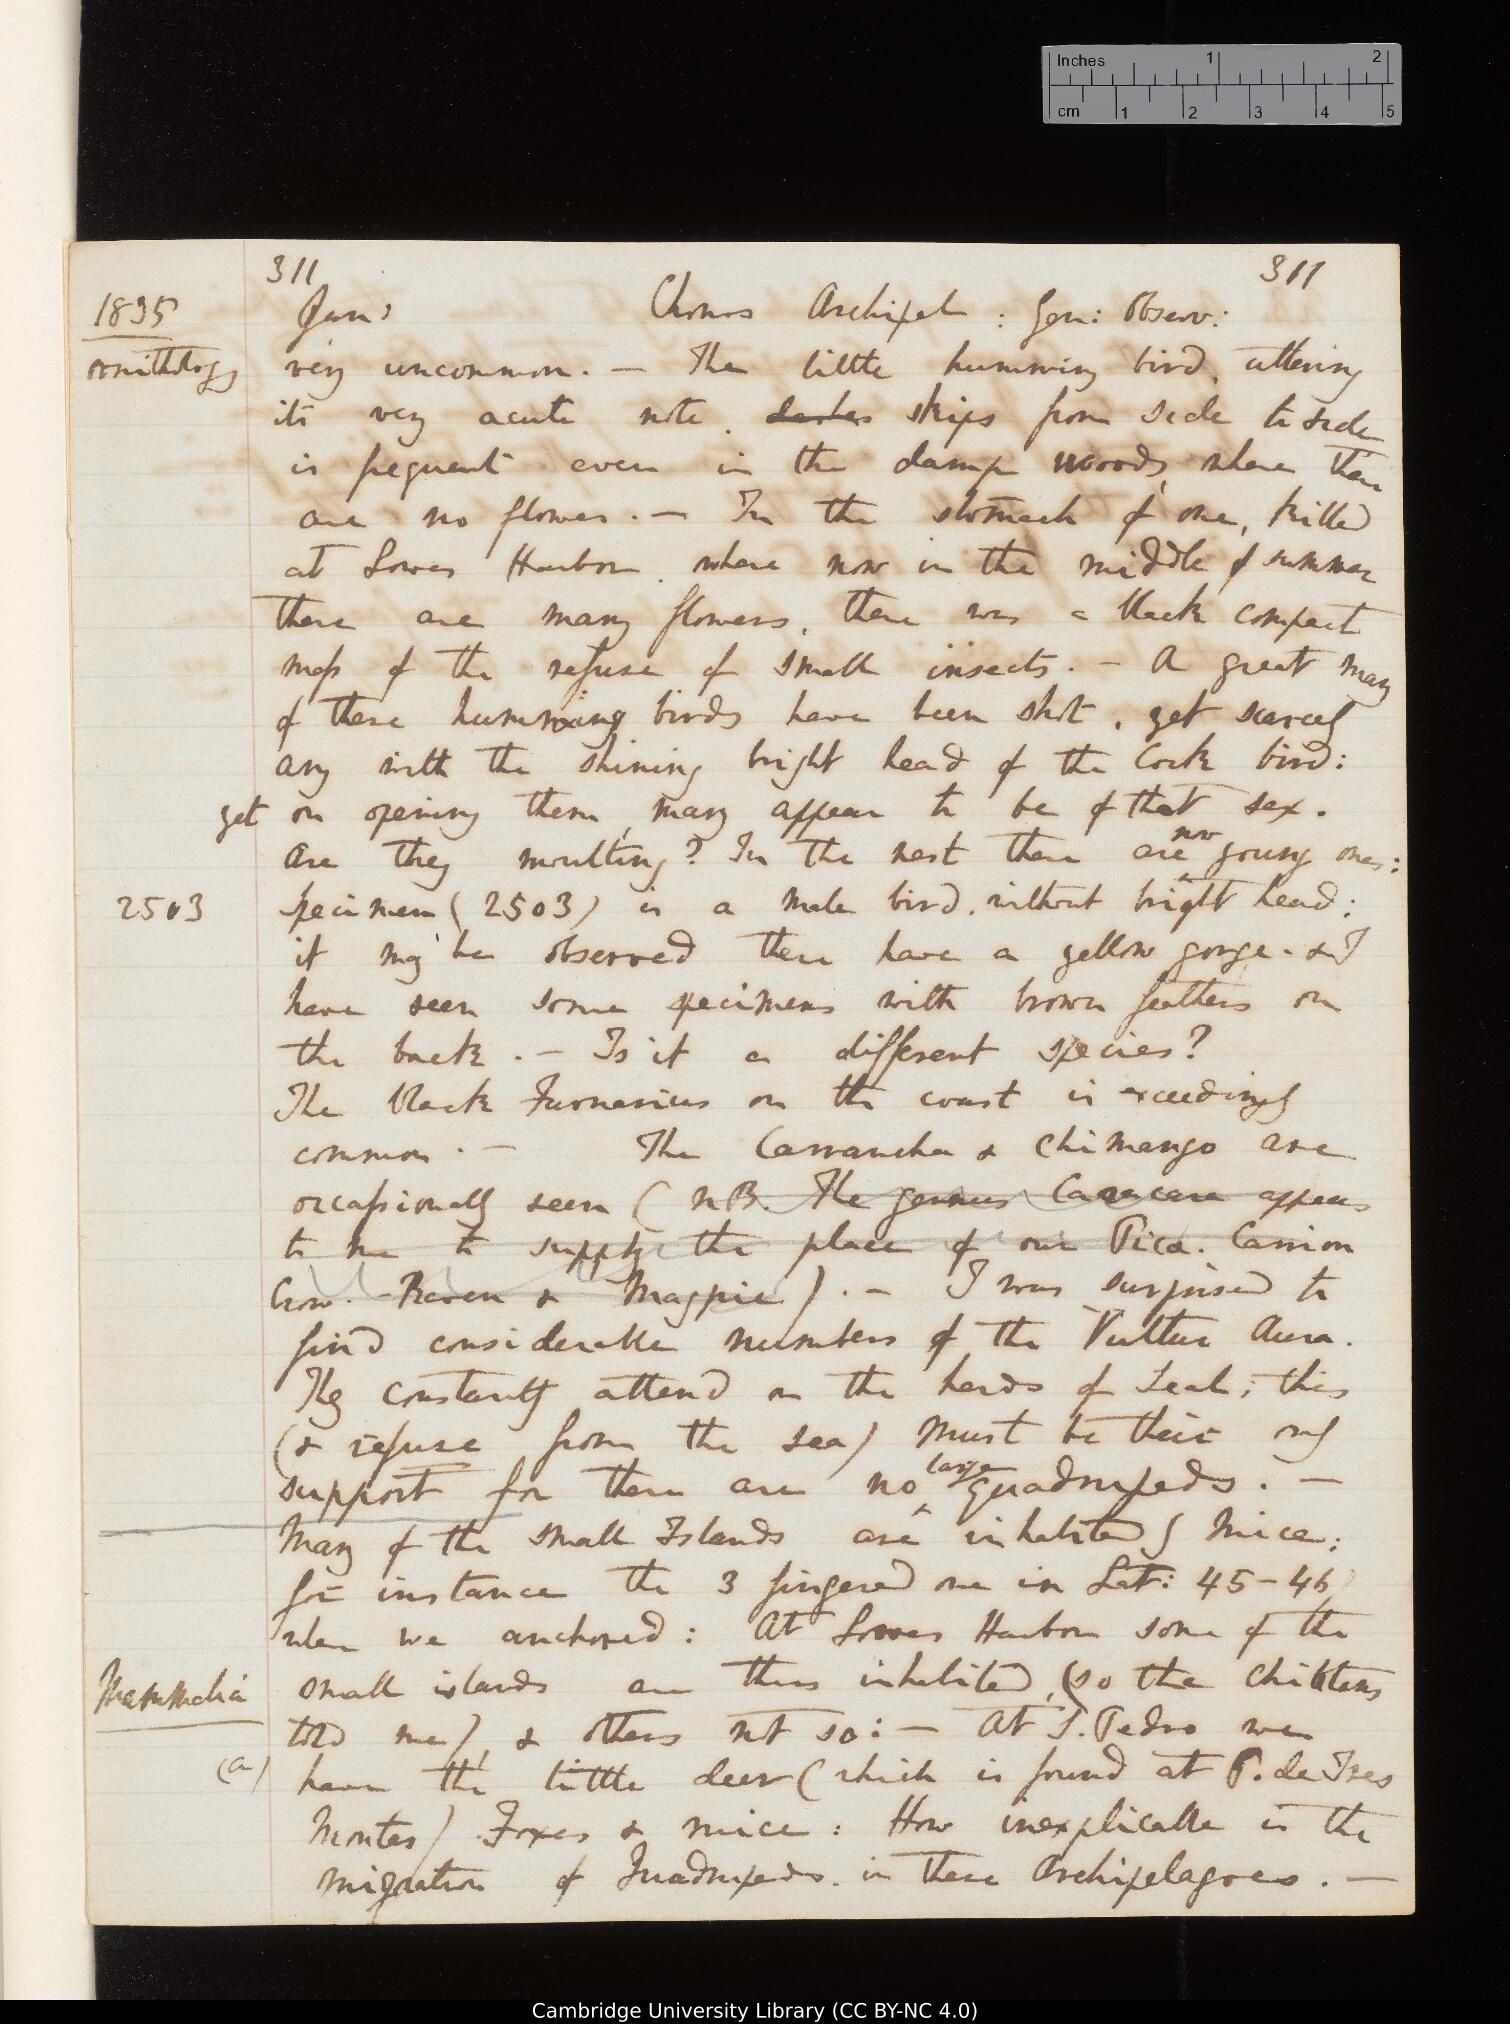 Inches 1 2
cm 1 2 3 4 5
311 311
1835 Jan: Chonos Archipel: Gen: Observ:
Ornithology very uncommon. — The little humming bird, uttering
its very acute note, skips from side to side
is frequent even in the damp woods, where there
are no flowers. — In the stomach of one, killed
at Lowes Harbor, where now in the middle of summer
there are many flowers, there was a black compact
mass of the refuse of small insects. — A great many
of these humming birds have been shot, yet scarcely
any with the shining bright head of the Cock bird:
yet on opening them, many appear to be of that sex.
Are they moulting? In the nest there are now young ones:
2503 Specimen (2503) is a male bird, without bright head;
it may be observed these have a yellow gorge. & I
have seen some specimens with brown feathers on
the back. — Is it a different species?
The black Furnarius on the coast is exceedingly
common. — The Carrancha & Chimango are
occassionally seen (NB. The genus Caracara appears
to me to supply the place of our Pica. Carrion
Crow. Raven & Magpie). — I was surprised to
find considerable numbers of the Vultur Aura.
They constantly attend on the herds of Seal; this
(& refuse from the sea) must be their only
support for there are no large quadrupeds. —
Many of the small Islands are inhabited by Mice;
for instance the 3 fingered one in Lat: 45-46,
when we anchored: At Lowes Harbor some of the
Mammalia small islands are thus inhabited, (so the Chilotans
told me), & others not so: — At S. Pedro we
(a) have the little deer (which is found at P. de Tres
Montes) Foxes & mice: How inexplicable is the
migration of Quadrupeds in these Archipelagoes. —
Cambridge University Library (CC BY-NC 4.0)